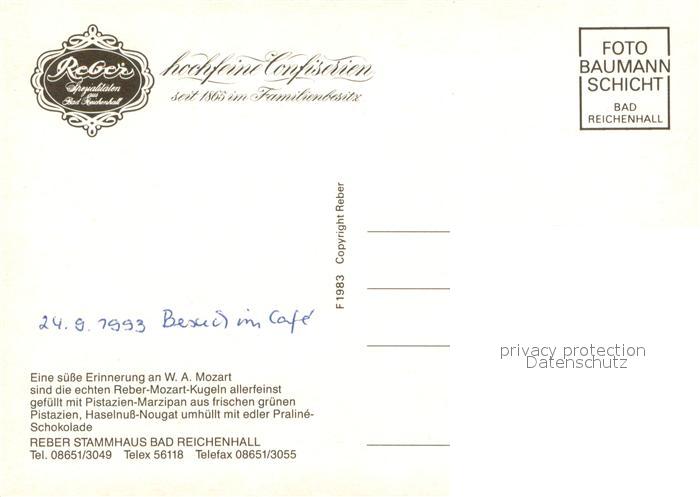 Reber
Spezialitäten
aus
Bad Reichenhall
hochfeine Confiserien
seit 1865 im Familienbesitz
FOTO
BAUMANN
SCHICHT
BAD
REICHENHALL
F 1983 Copyright Reber
24.9.1993 Besuch im Café
privacy protection
Datenschutz
Eine süße Erinnerung an W. A. Mozart
sind die echten Reber-Mozart-Kugeln allerfeinst
gefüllt mit Pistazien-Marzipan aus frischen grünen
Pistazien, Haselnuß-Nougat umhüllt mit edler Praliné-
Schokolade
REBER STAMMHAUS BAD REICHENHALL
Tel. 08651/3049 Telex 56118 Telefax 08651/3055